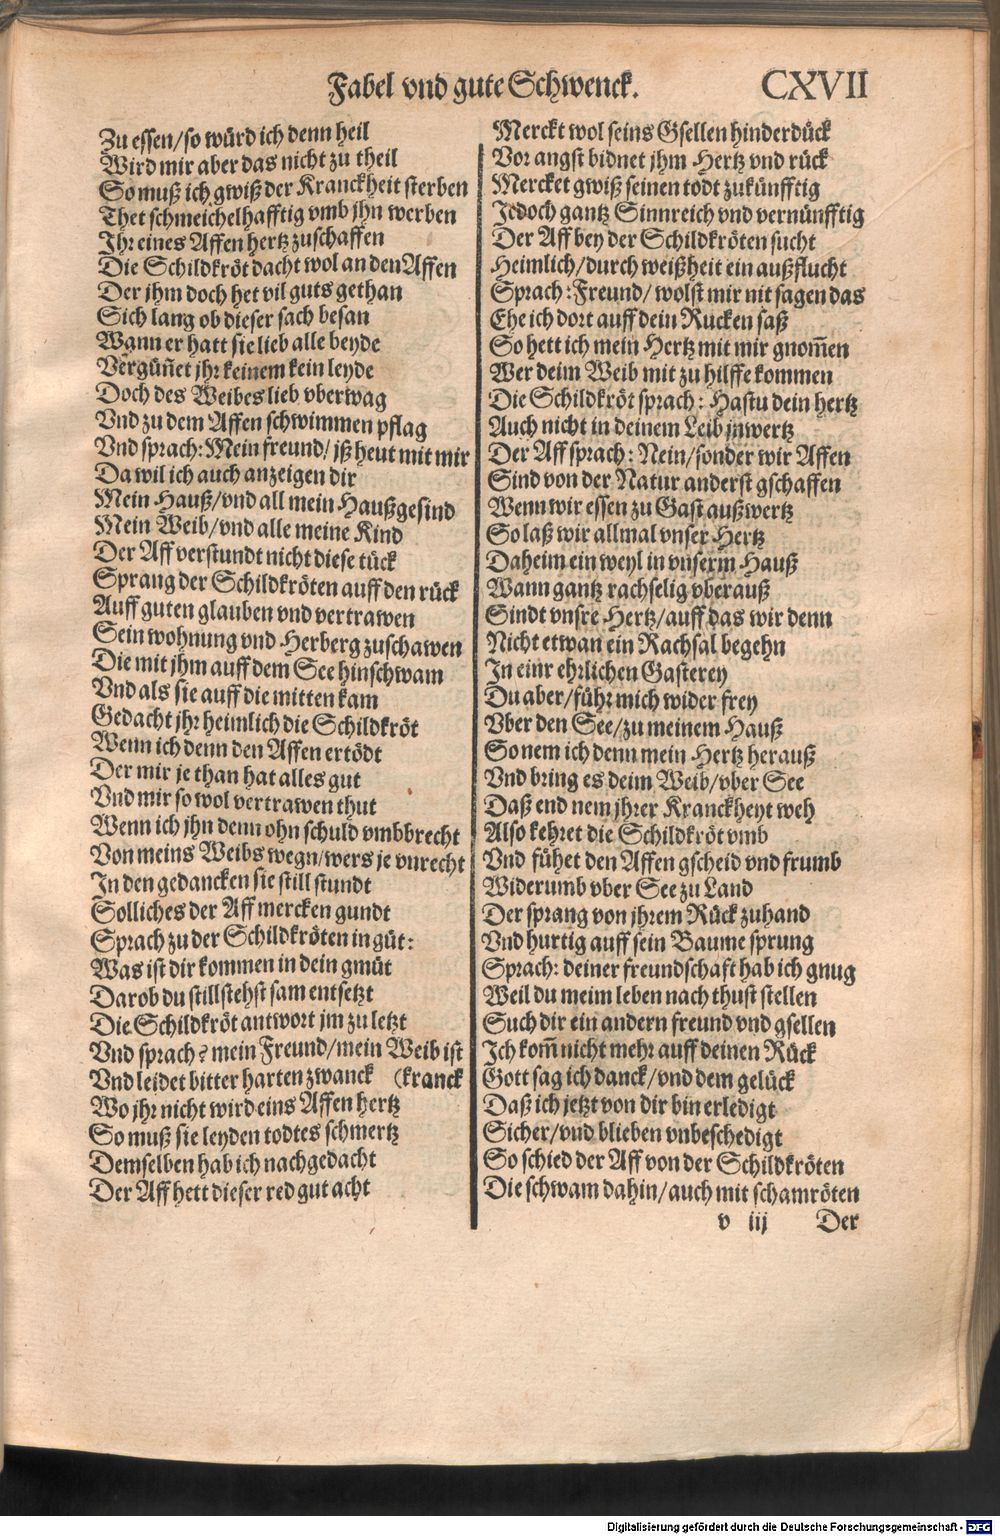 Fabel vnd gute Schwenck. CXVII
Zu essen/so würd ich denn heil
Wird mir aber das nicht zu theil
So muß ich gwiß der Kranckheit sterben
Thet schmeichelhafftig vmb jhn werben
Jhr eines Affen hertz zuschaffen
Die Schildkröt dacht wol an den Affen
Der jhm doch het vil guts gethan
Sich lang ob dieser sach besan
Wann er hatt sie lieb alle beyde
Vergün̄et jhr keinem kein leyde
Doch des Weibes lieb vberwag
Vnd zu dem Affen schwimmen pflag
Vnd sprach: Mein freund/ jß heut mit mir
Da wil ich auch anzeigen dir
Mein Hauß/vnd all mein Haußgesind
Mein Weib/vnd alle meine Kind
Der Aff verstundt nicht diese tück
Sprang der Schildkröten auff den rück
Auff guten glauben vnd vertrawen
Sein wohnung vnd Herberg zuschawen
Die mit jhm auff dem See hinschwam
Vnd als sie auff die mitten kam
Gedacht jhr heimlich die Schildkröt
Wenn ich denn den Affen ertödt
Der mir je than hat alles gut
Vnd mir so wol vertrawen thut
Wenn ich jhn denn ohn schuld vmbbrecht
Von meins Weibs wegn/wers je vnrecht
In den gedancken sie still stundt
Solliches der Aff mercken gundt
Sprach zu der Schildkröten in güt:
Was ist dir kommen in dein gmüt
Darob du stillstehst sam entsetzt
Die Schildkröt antwort jm zu letzt
Vnd sprach? mein Freund/mein Weib ist
Vnd leidet bitter harten zwanck (kranck
Wo jhr nicht wird eins Affen hertz
So muß sie leyden todtes schmertz
Demselben hab ich nachgedacht
Der Aff hett dieser red gut acht
Merckt wol seins Gsellen hinderdück
Vor angst bidnet jhm Hertz vnd rück
Mercket gwiß seinen todt zukünfftig
Jedoch gantz Sinnreich vnd vernünfftig
Der Aff bey der Schildkröten sucht
Heimlich/durch weißheit ein außflucht
Sprach: Freund/ wolst mir nit sagen das
Ehe ich dort auff dein Rucken saß
So hett ich mein Hertz mit mir gnom̄en
Wer deim Weib mit zu hilffe kommen
Die Schildkröt sprach: Hastu dein hertz
Auch nicht in deinem Leib jnwertz
Der Aff sprach: Nein/sonder wir Affen
Sind von der Natur anderst gschaffen
Wenn wir essen zu Gast außwertz
So laß wir allmal vnser Hertz
Daheim ein weyl in vnserm Hauß
Wann gantz rachselig vberauß
Sindt vnsre Hertz/auff das wir denn
Nicht etwan ein Rachsal begehn
In einr ehrlichen Gasterey
Du aber/führ mich wider frey
Vber den See/zu meinem Hauß
So nem ich denn mein Hertz herauß
Vnd bring es deim Weib/vber See
Daß end nem jhrer Kranckheyt weh
Also kehret die Schildkröt vmb
Vnd fühet den Affen gscheid vnd frumb
Widerumb vber See zu Land
Der sprang von jhrem Rück zuhand
Vnd hurtig auff sein Baume sprung
Sprach: deiner freundschaft hab ich gnug
Weil du meim leben nach thust stellen
Such dir ein andern freund vnd gsellen
Ich kom̄ nicht mehr auff deinen Rück
Gott sag ich danck/vnd dem gelück
Daß ich jetzt von dir bin erledigt
Sicher/vnd blieben vnbeschedigt
So schied der Aff von der Schildkröten
Die schwam dahin/auch mit schamröten
v iij Der
Digitalisierung gefördert durch die Deutsche Forschungsgemeinschaft - DFG